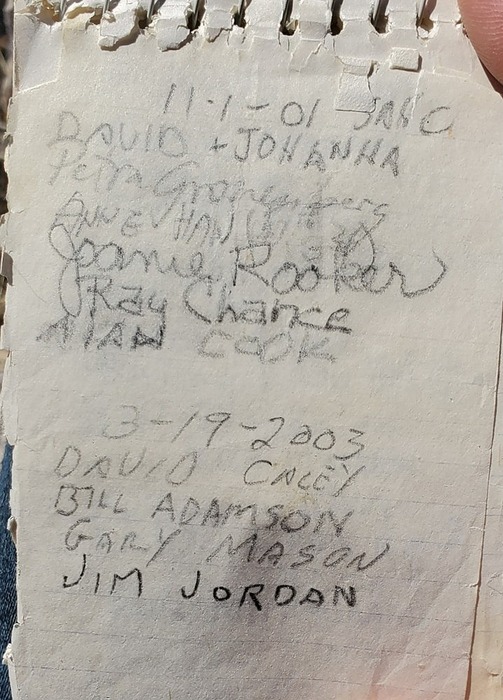 11-1-01 SAHC
DAVID + JOHANNA
Petra
ANNE HAN
Joanie Rooker
Ray Chance
ALAN COOK
3-19-2003
DAVID CALEY
BILL ADAMSON
GARY MASON
JIM JORDAN